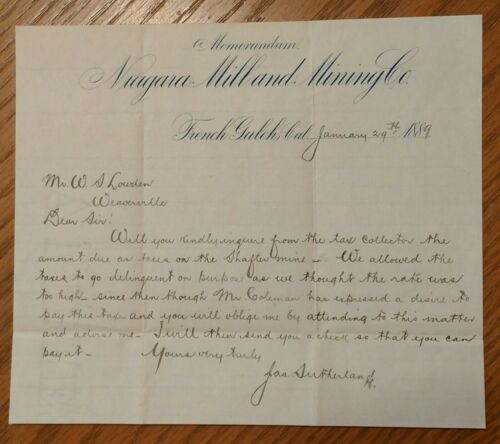 Memorandum.
Niagara Mill and Mining Co.
French Gulch, Cal. January 29th 1889
Mr. W. S Lowden
Weaverville
Dear Sir!
Will you kindly inquire from the tax collector the
amount due as taxes on the Shafter mine - We allowed the
taxes to go delinquent on purpose as we thought the rate was
too high - since then though Mr. Coleman has expressed a desire to
pay this tax and you will oblige me by attending to this matter
and advise me - I will then send you a check so that you can
pay it - Yours very truly
Jas Sutherland